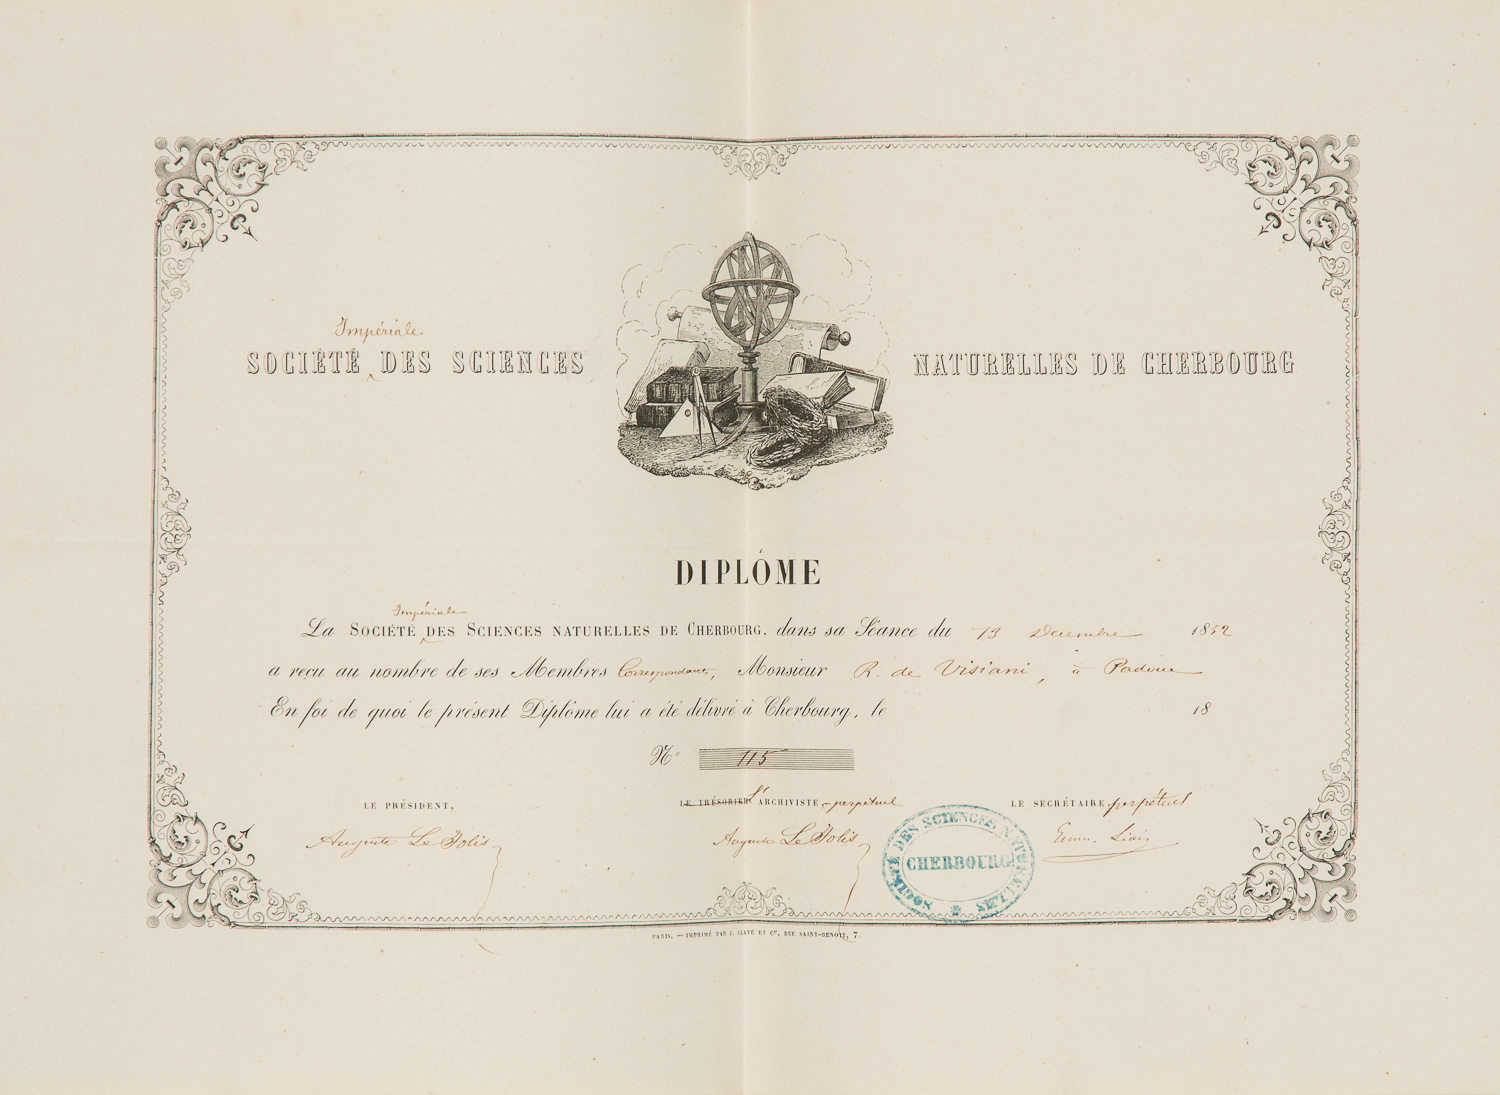 Impériale
SOCIÉTÉ DES SCIENCES NATURELLES DE CHERBOURG
DIPLÔME
Impériale
La SOCIÉTÉ DES SCIENCES NATURELLES DE CHERBOURG, dans sa Séance du 13 Décembre 1852
a reçu au nombre de ses Membres Correspondants, Monsieur R. de Visiani, à Padoue
En foi de quoi le présent Diplôme lui a été délivré à Cherbourg, le 18
N° 115
LE PRÉSIDENT, LE TRÉSORIER L'ARCHIVISTE, perpétuel LE SECRÉTAIRE, perpétuel
Auguste Le Jolis Auguste Le Jolis Emm. Liais
SOCIÉTÉ DES SCIENCES NATURELLES
CHERBOURG
PARIS. — IMPRIMÉ PAR J. CLAYE ET Cie, RUE SAINT-BENOIT, 7.